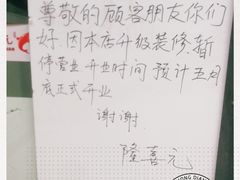 尊敬的顾客朋友你们
好.因本店升级装修.暂
停营业 开业时间 预计五月
底正式开业
谢谢
隆喜元